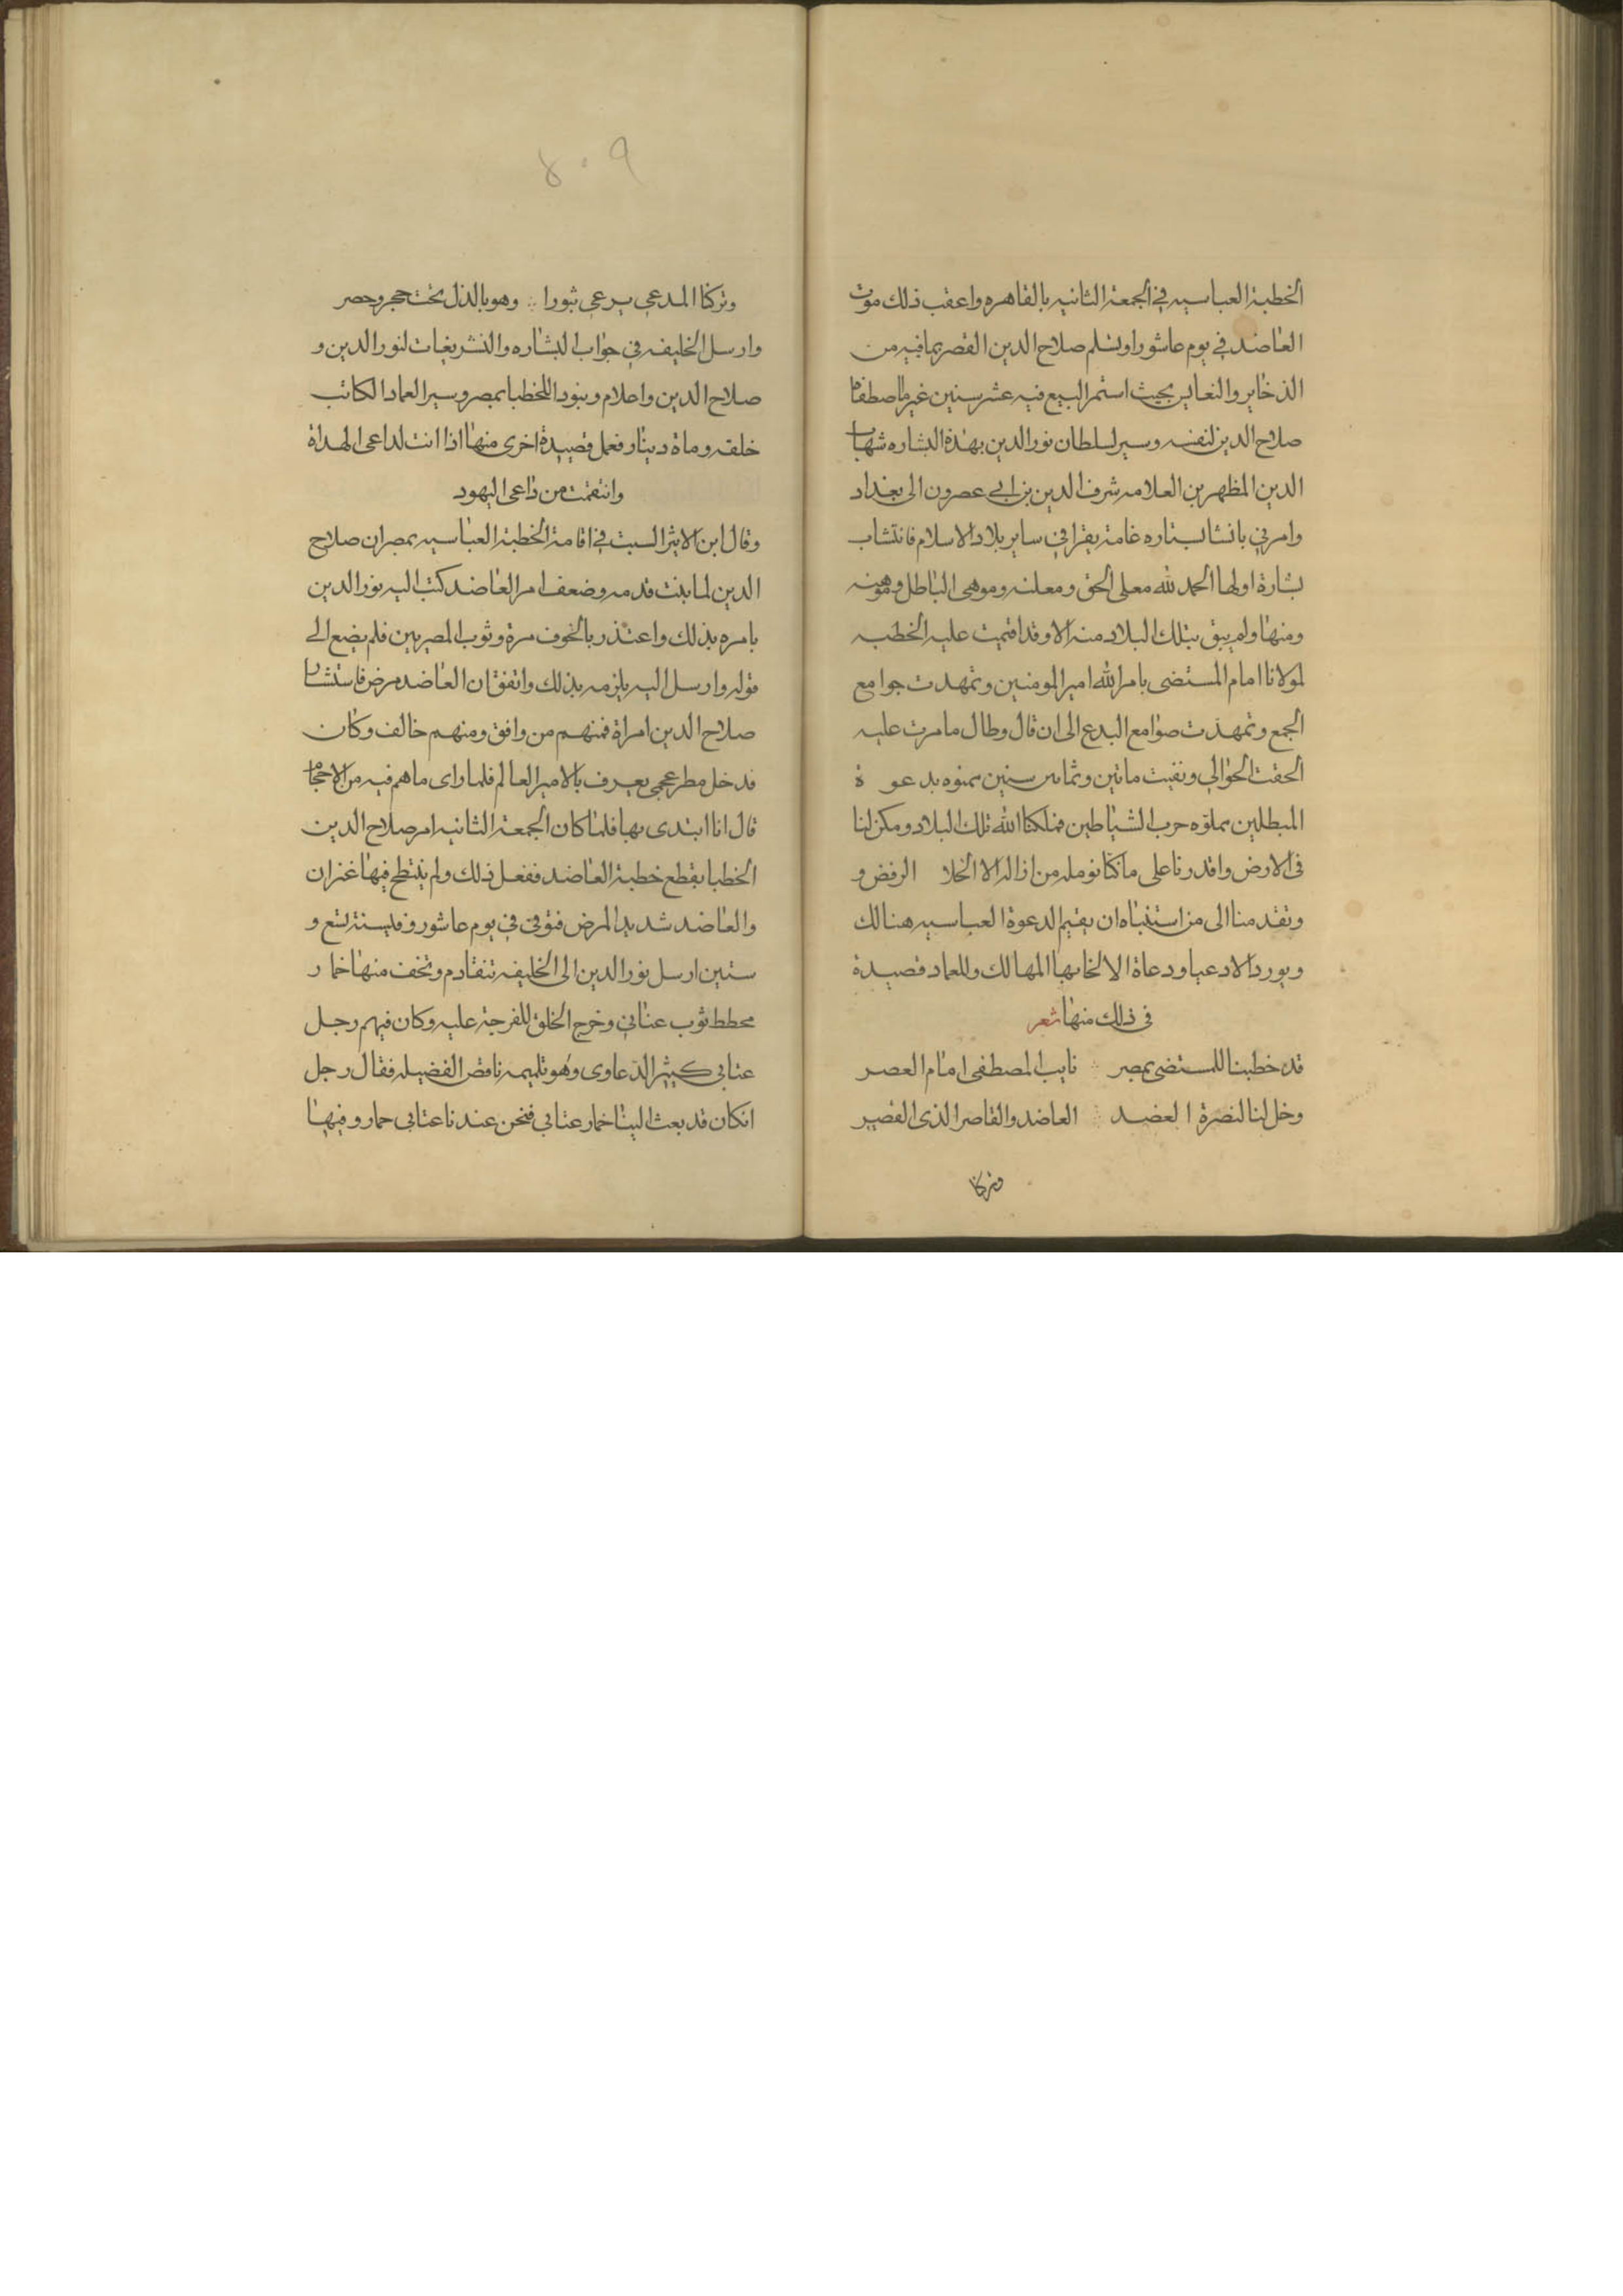 الخطبة العباسيه في الجمعة الثانيه بالقاهره واعقب ذلك موت
العاضد في يوم عاشورا وتسلم صلاح الدين القصر بما فيه من
الذخاير والنفايس بحيث استمر البيع فيه عشر سنين غير ما اصطفاه
صلاح الدين لنفسه وسير السلطان نور الدين بهذه البشاره شهاب
الدين المظهر بن العلامه شرف الدين بن ابي عصرون الى بغداد
وامرني بانشا بشاره عامة يقرا في ساير بلاد الاسلام فانشات
بشارة اولها الحمد لله معلى الحق ومعلنه وموهى الباطل وموهنه
ومنها ولم يبق بتلك البلاد منبر الا وقد اقيمت عليه الخطبه
لمولانا امام المستضى بامر الله امير المومنين وتمهدت جوامع
الجمع وتهدمت صوامع البدع الى ان قال وطال ما مرت عليه
الحقب الخوالي وبقيت ماتين وثمان سنين ممنوه بدعوة
المبطلين مملوه حزب الشياطين فملكنا الله تلك البلاد ومكن لنا
فى الارض واقدرنا على ما كنا نومله من ازالة الالحاد الرفض و
وتقدمنا الى من استنبناه ان يقيم الدعوة العباسيه هنالك
ويورد الادعيا ودعاة الالحاد بها المهالك وللعماد قصيدة
فى ذلك منها شعر
قد خطبنا للمستضى بمصر نايب المصطفى امام العصر
وخذلنا لنصرة العضد العاضد والقاصر الذى القصر
وتركنا
٨٠٩
وتركنا المدعى يدعى ثبورا وهو بالذل تحت حجر وحصر
وارسل الخليفه في جواب البشاره والتشريفات لنور الدين و
صلاح الدين واعلام وبنود اللخطبا بمصر وسير العماد الكاتب
خلقه وماة دينار فعمل قصيدة اخرى منها اذا انت لداعى الهداة
وانتقمت من داعى اليهود
وقال ابن الاثير السبب في اقامة الخطبة العباسيه بمصر ان صلاح
الدين لما بثت قدمه وضعف امر العاضد كتب اليه نور الدين
يامره بذلك واعتذر بالخوف مرة وثوب المصريين فلم يضع الى
قوله وارسل اليه يلزمه بذلك واتفق ان العاضد مرض فاستشار
صلاح الدين امراة فمنهم من وافق ومنهم خالف وكان
قد خل مطر عجمى يعرف بالامير العالم فلما راى ما هم فيه من الاحجام
قال انا ابتدى بها فلما كان الجمعة الثانيه امر صلاح الدين
الخطبا بقطع خطبة العاضد ففعل ذلك ولم ينتطح فيها عنزان
والعاضد شديد المرض فتوفى في يوم عاشورا وفي سنة تسع و
ستين ارسل نور الدين الى الخليفه تنقادم وتحف منها حمار
مخطط ثوب عتابي وخرج الخلق للفرجة عليه وكان فيهم رجل
عتابي كثير الدعاوى وهو تلميمه ناقص الفضيله فقال رجل
انكان قد بعث الينا حمار عتابي فنحن عندنا عتابى حمار وفيها